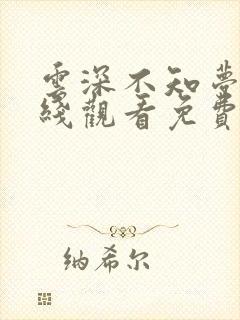 雲深不知夢
綫觀看免費
纳希尔